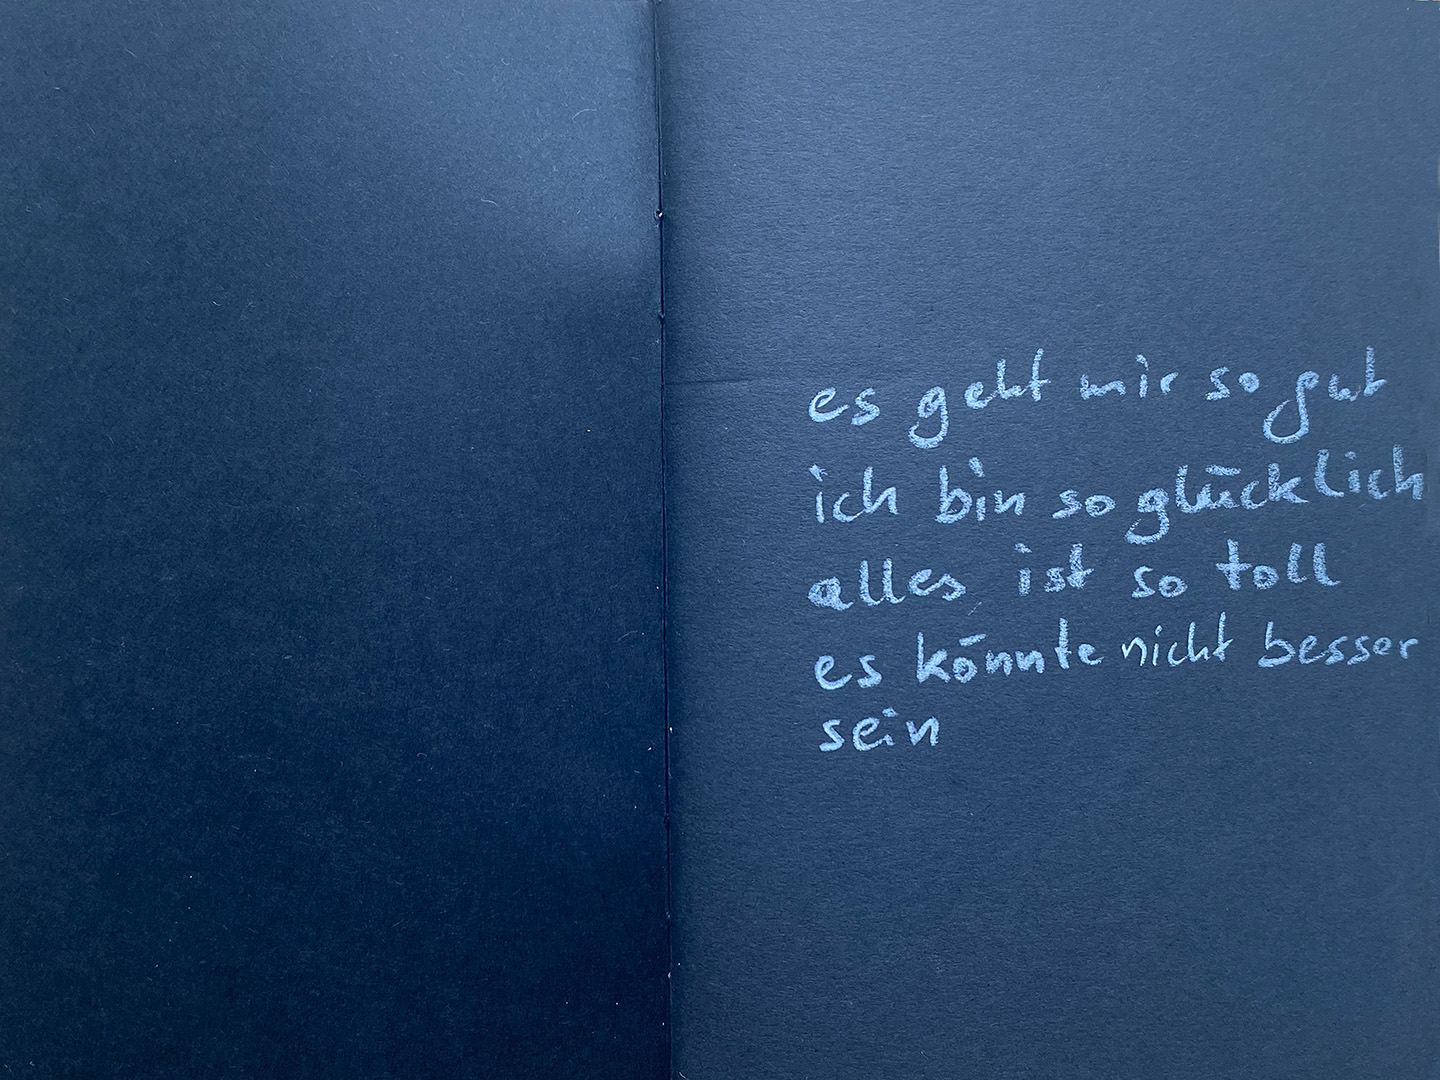 es geht mir so gut
ich bin so glücklich
alles ist so toll
es könnte nicht besser
sein